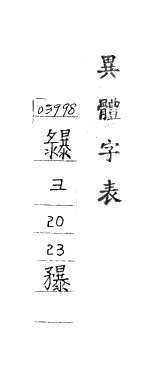 異體字表
03998
丑
20
23